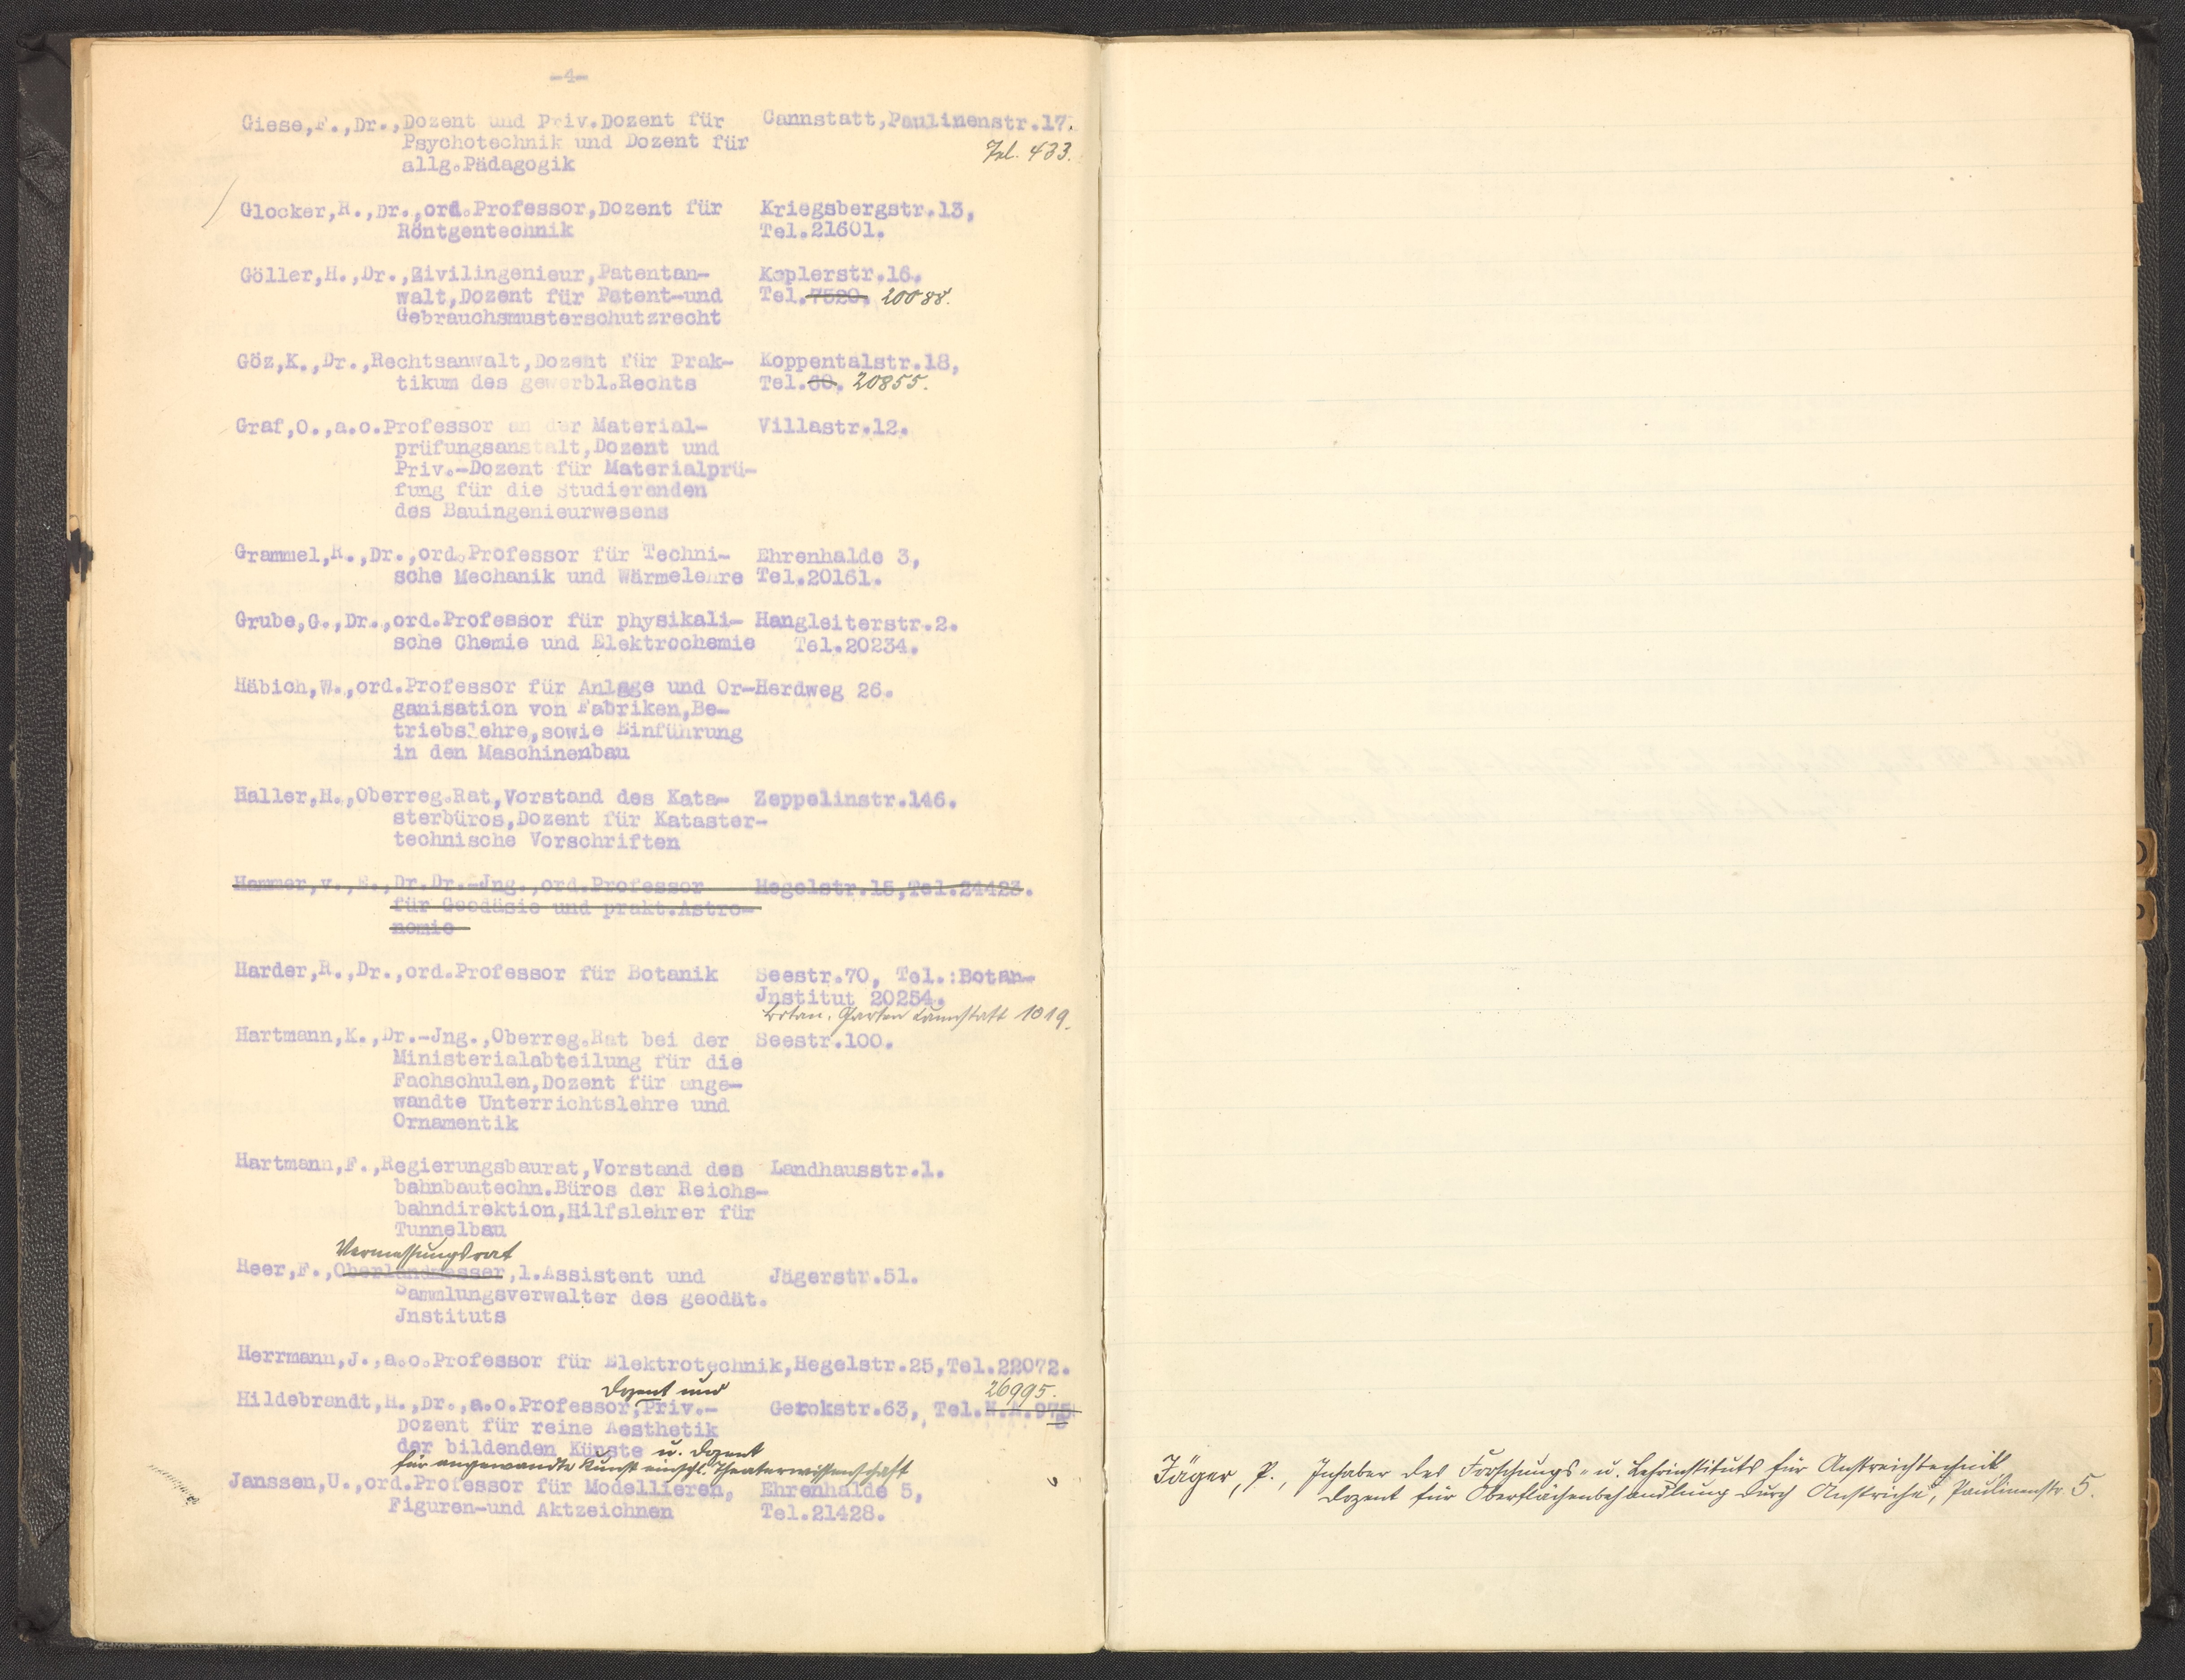 -4-
Giese,F.,Dr.,Dozent und Priv.Dozent für Cannstatt,Paulinenstr.17.
Psychotechnik und Dozent für Tel. 433.
allg.Pädagogik
Glocker,R.,Dr.,ord.Professor,Dozent für Kriegsbergstr.13,
Röntgentechnik Tel.21601.
Göller,H.,Dr.,Zivilingenieur,Patentan- Keplerstr.16.
walt,Dozent für Patent-und Tel.7520. 20088.
Gebrauchsmusterschutzrecht
Göz,K.,Dr.,Rechtsanwalt,Dozent für Prak- Koppentalstr.18,
tikum des gewerbl.Rechts Tel.60. 20855.
Graf,O.,a.o.Professor an der Material- Villastr.12.
prüfungsanstalt,Dozent und
Priv.-Dozent für Materialprü-
fung für die Studierenden
des Bauingenieurwesens
Grammel,R.,Dr.,ord.Professor für Techni- Ehrenhalde 3,
sche Mechanik und Wärmelehre Tel.20161.
Grube,G.,Dr.,ord.Professor für physikali- Hangleiterstr.2.
sche Chemie und Elektrochemie Tel.20234.
Häbich,W.,ord.Professor für Anlage und Or-Herdweg 26.
ganisation von Fabriken,Be-
triebslehre,sowie Einführung
in den Maschinenbau
Haller,H.,Oberreg.Rat,Vorstand des Kata- Zeppelinstr.146.
sterbüros,Dozent für Kataster-
technische Vorschriften
Hammer,v.,E.,Dr.Dr.-Jng.,ord.Professor Hegelstr.15,Tel.24423.
für Geodäsie und prakt.Astro-
nomie
Harder,R.,Dr.,ord.Professor für Botanik Seestr.70, Tel.:Botan-
Jnstitut 20254.
botan. Garten Cannstatt 1019.
Hartmann,K.,Dr.-Jng.,Oberreg.Rat bei der Seestr.100.
Ministerialabteilung für die
Fachschulen,Dozent für ange-
wandte Unterrichtslehre und
Ornamentik
Hartmann,F.,Regierungsbaurat,Vorstand des Landhausstr.1.
bahnbautechn.Büros der Reichs-
bahndirektion,Hilfslehrer für
Tunnelbau
Vermessungsrat
Heer,F.,Oberlandmesser,1.Assistent und Jägerstr.51.
Sammlungsverwalter des geodät.
Jnstituts
Herrmann,J.,a.o.Professor für Elektrotechnik,Hegelstr.25,Tel.22072.
Dozent und 26995.
Hildebrandt,H.,Dr.,a.o.Professor,Priv.- Gerokstr.63, Tel.N.A.975
Dozent für reine Aesthetik
der bildenden Künste u. Dozent
für angewandte Kunst einschl. Theaterwissenschaft
Janssen,U.,ord.Professor für Modellieren, Ehrenhalde 5,
Figuren-und Aktzeichnen Tel.21428.
Jäger, P., Inhaber des Forschungs- u. Lehrinstituts für Anstreichtechnik
Dozent für Oberflächenbehandlung durch Anstriche, Paulinenstr. 5.